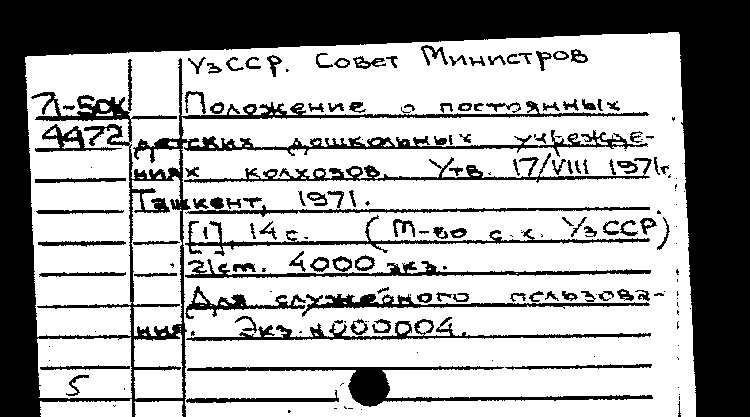 УзССР. Совет Министров
71-БОК Положение о постоянных
4472 детских дошкольных учрежде-
ниях колхозов. Утв. 17/VIII 1971г.
Ташкент, 1971.
[1], 14 с. (М-во с.х. УзССР)
21см. 4000 экз.
Для служебного пользова-
ния. Экз. N000004.
5